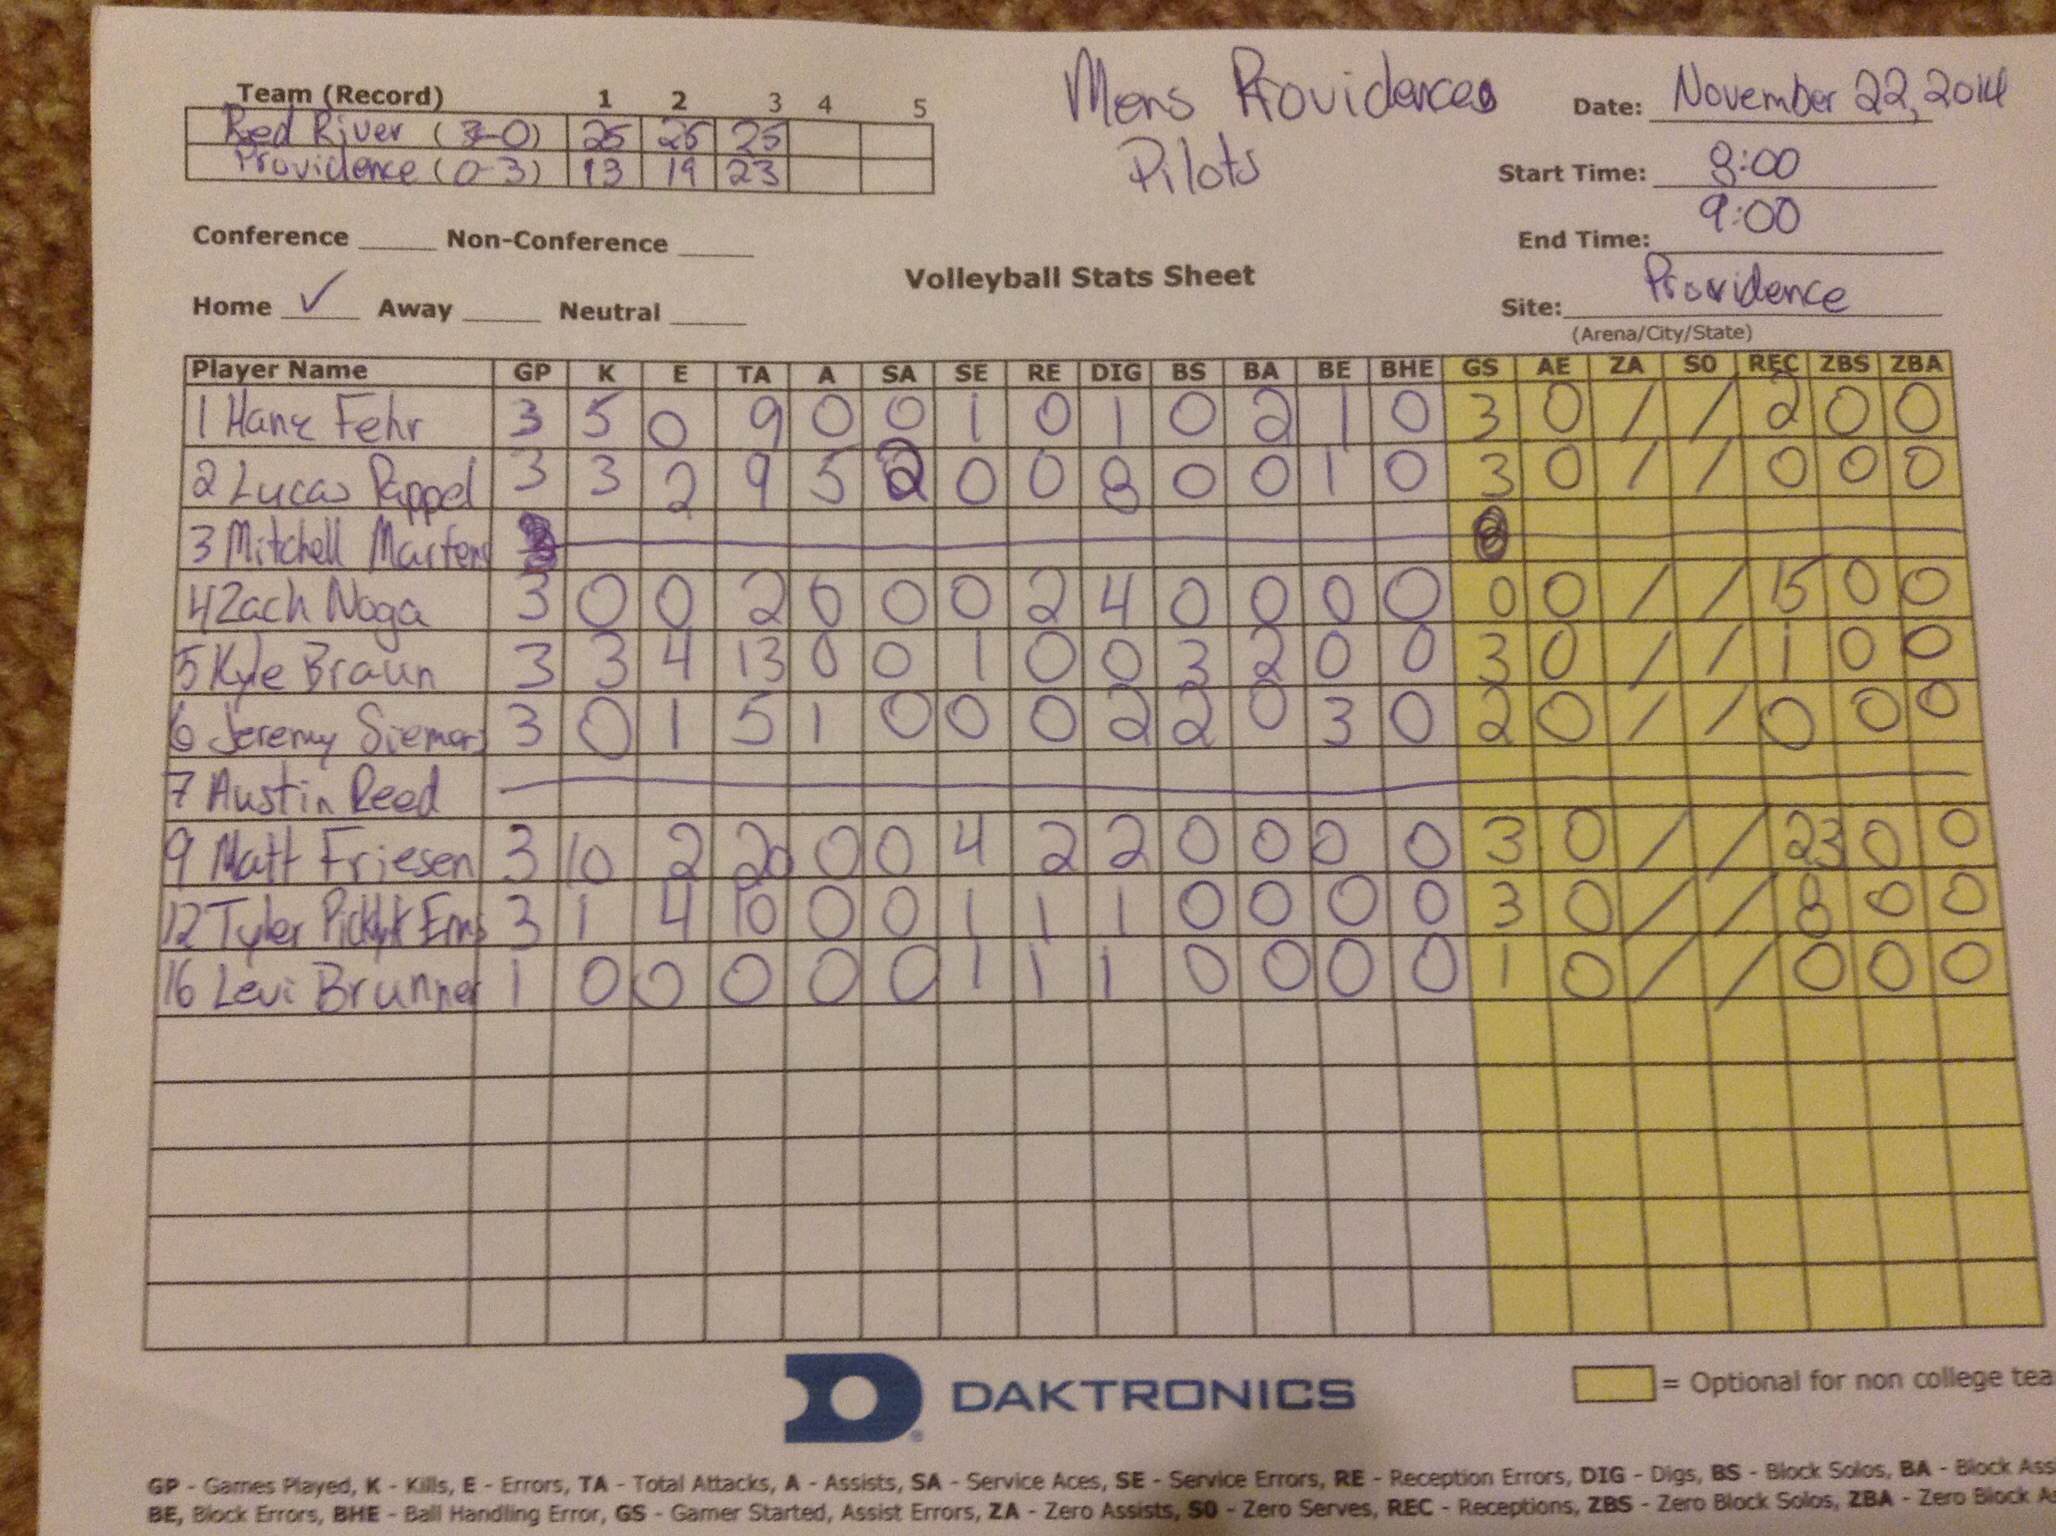 Team (Record) 1 2 3 4 5
Red River (3-0) 25 25 25
Providence (0-3) 13 19 23
Mens Providences
Pilots
Date: November 22, 2014
Start Time: 8:00
End Time: 9:00
Conference ____ Non-Conference ____
Volleyball Stats Sheet
Home ✓ Away ____ Neutral ____
Site: Providence
(Arena/City/State)
Player Name GP K E TA A SA SE RE DIG BS BA BE BHE GS AE ZA SO REC ZBS ZBA
1 Hanz Fehr 3 5 0 9 0 0 1 0 1 0 2 1 0 3 0 / / 2 0 0
2 Lucas Pappel 3 3 2 9 5 2 0 0 8 0 0 1 0 3 0 / / 0 0 0
3 Mitchell Martens
4 Zach Noga 3 0 0 2 0 0 0 2 4 0 0 0 0 0 0 / / 15 0 0
5 Kyle Braun 3 3 4 13 0 0 1 0 0 3 2 0 0 3 0 / / 1 0 0
6 Jeremy Siemens 3 0 1 5 1 0 0 0 2 2 0 3 0 2 0 / / 0 0 0
7 Austin Reed
9 Matt Friesen 3 10 2 20 0 0 4 2 2 0 0 0 0 3 0 / / 23 0 0
12 Tyler Picklyk Ens 3 1 4 10 0 0 1 1 1 0 0 0 0 3 0 / / 8 0 0
16 Levi Brunner 1 0 0 0 0 0 1 1 1 0 0 0 0 1 0 / / 0 0 0
DAKTRONICS
= Optional for non college tea
GP - Games Played, K - Kills, E - Errors, TA - Total Attacks, A - Assists, SA - Service Aces, SE - Service Errors, RE - Reception Errors, DIG - Digs, BS - Block Solos, BA - Block Ass
BE, Block Errors, BHE - Ball Handling Error, GS - Gamer Started, Assist Errors, ZA - Zero Assists, SO - Zero Serves, REC - Receptions, ZBS - Zero Block Solos, ZBA - Zero Block As